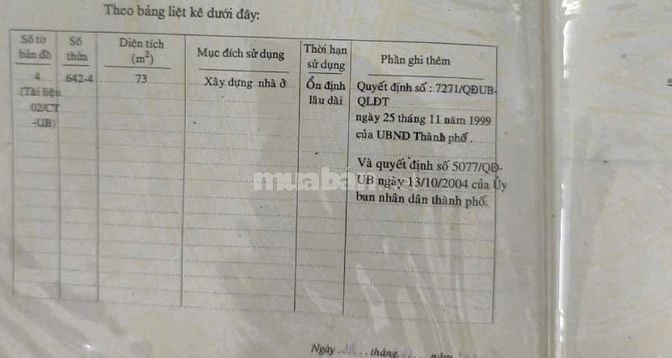 Theo bảng liệt kê dưới đây:
Số tờ bản đồ
Số thửa
Diện tích (m²)
Mục đích sử dụng
Thời hạn sử dụng
Phần ghi thêm
4
(Tài liệu
02/CT
-UB)
642-4
73
Xây dựng nhà ở
Ổn định
lâu dài
Quyết định số : 7271/QĐUB-
QLĐT
ngày 25 tháng 11 năm 1999
của UBND Thành phố .
Và quyết định số 5077/QĐ-
UB ngày 13/10/2004 của Ủy
ban nhân dân thành phố.
muaban
Ngày tháng năm